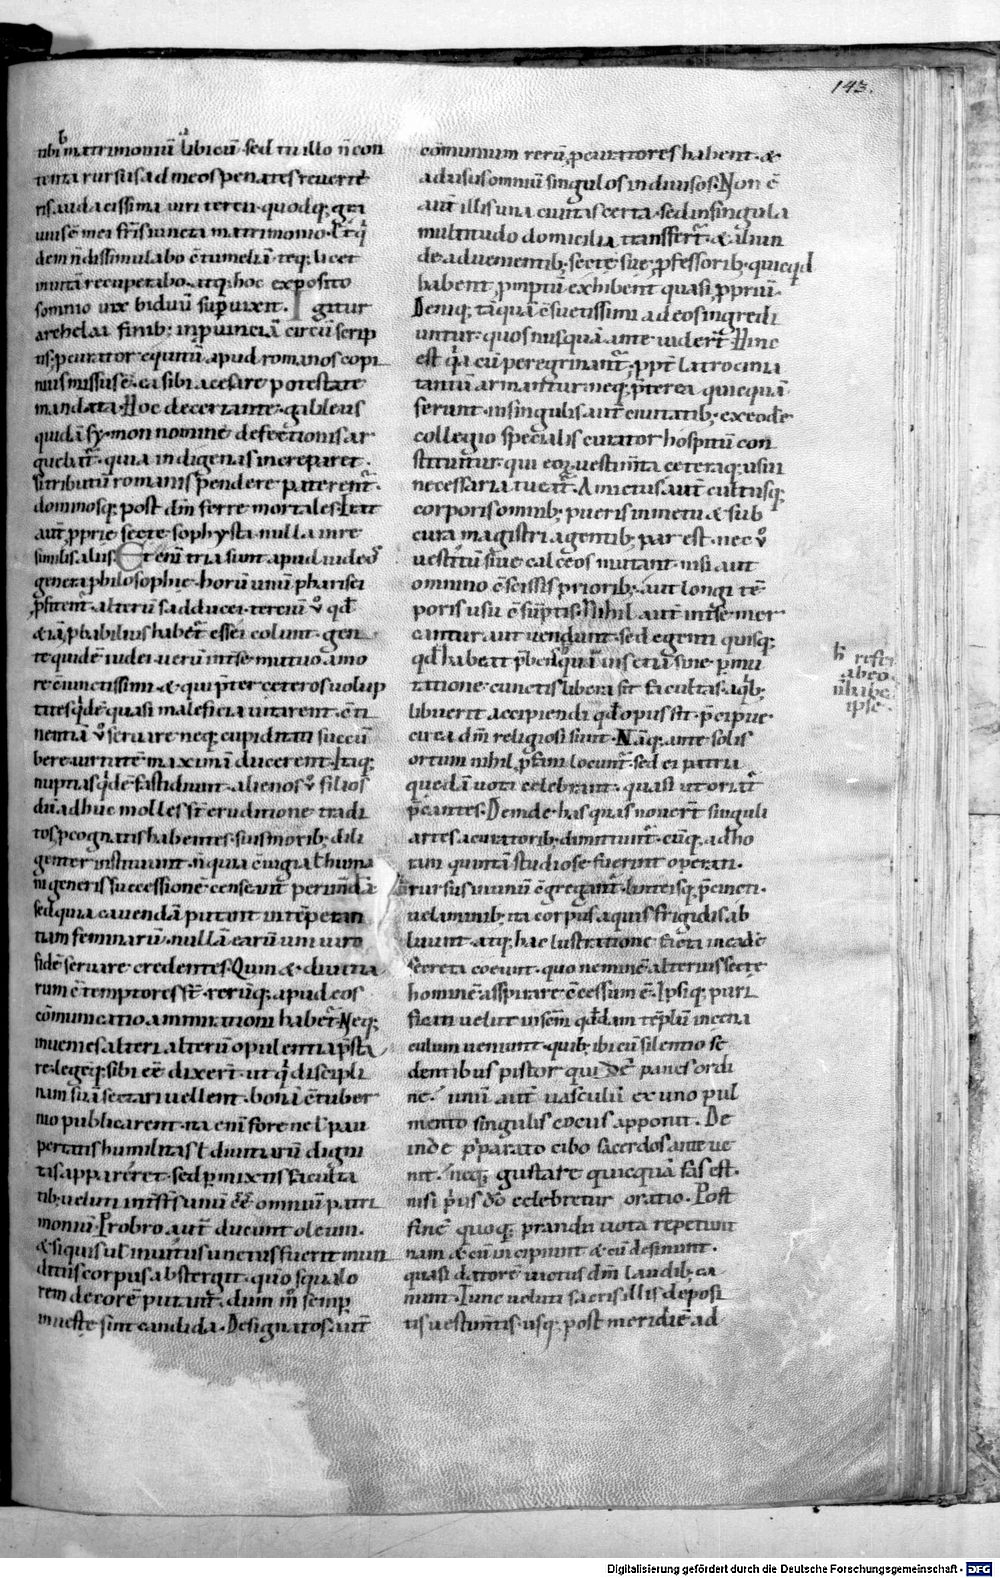 143.
tibi matrimoniū libicū · sed tu illo ñ con
tenta rursus ad meos penates reuerte
ris audacissima uiri tercii · quodq; gra
uius ē mei frīs iuncta matrimonio ·
dem ñ dissimulabo ctumeliā · teq; licet
inuitā recuperabo · atq; hoc exposito
somnio uix biduū supuixit . Igitur
archelai finib; in puinciā circū scrip
tis · pcurator equitū apud romanos copi
nius missus ē · ea sibi a cesare potestate
mandata · Hoc decertante · galileus
quidā sy·mon nomine defectionis ar
guebat · quia indigenas increparet ·
si tributū romanis pendere paterent ·
dominosq; post dm ferre mortales · Erat
aut pprie secte sophysta nulla in re
similis aliis. Et enī tria sunt apud iudeos
genera philosophie · horū unū pharisei
pfitent · alterū sadducei · terciū v° qd
& iā pbabilius habet essei colunt · gen
te quidē iudei · uerū inter se mutuo amo
re ciunctissimi · & qui pter ceteros uolup
tates qdē quasi maleficia uitarent · cti
nentiā v° seruare neq; cupiditati succū
bere · uirtutē maximā ducerent · Itaq;
nuptias qdē fastidiunt · alienos v° filios
dū adhuc molles st eruditione tradi
tos · p cognatis habentes · suis morib; dili
genter instituunt · ñ quia ciugia l huma
ni generis successionē censeant perimdā
sed quia cauendā putant intēperan
tiam feminarū · nullā earū uni uiro
fidē seruare credentes · Qum & diuitia
rum ctemptores st · rerūq; apud eos
cōmunicatio ammirationi habet · Neq;
inuenies alteri alterū opulentia psta
re · legēq; sibi eē dixert · ut q disciplinam
suā sectari uellent · bona ctuber
nio publicarent · ita enī fore ne l pau
pertatis humilitas l diuitiarū digni
tas appareret · sed pmixtis faculta
tib; ueluti int frs unū eē omniū patri
moniū · Probro aut ducunt oleum ·
& siquis ul inuitus unctus fuerit mun
ditiis corpus abstergit · qm squalo
rem decorē putant · dum m° semp
in ueste sint candida · Designatos aut
cōmunium rerū pcuratores habent · &
ad usus omniū singulos indiuisos · Non ē
aut illis una ciuitas certa · sed in singula
multitudo domicilia transfert · & aliun
de aduenientib; secte sue pfessorib; quicqd
habent · pmptū exhibent quasi ppriū ·
Deniq; tāquā csuetissimi ad eos ingredi
untur · quos nusquā ante uidert · Hinc
est qa cū peregrinant · ppt latrocinia
tantū armantur neq; pterea quicquā
ferunt · in singulis aut ciuitatib; ex eodē
collegio specialis curator hospitū con
stituitur · qui eoꝝ uestimta ceteraq; usui
necessaria tueat · Amictus aut cultusq;
corporis omnib; pueris in metu & sub
cura magistri agentib; par est · nec v°
uestitū siue calceos mutant · nisi aut
omnino cscissis priorib; aut longi tē
poris usu csūptis · Nihil aut inter se mer
cantur aut uendunt · sed egenti quisq;
qd habeat pbens
tatione cunctis libera sit facultas · a qb;
libuerit accipiendi qd opus sit · pcipue
circa dm religiosi sunt · Nāq; ante solis
ortum nihil pfani locunt · sed ei patria
quedā uota celebrant · quasi ut oriat
pcantes · Deinde has quas nouert singuli
artes a curatorib; dimittunt · cūq; ad ho
ram quintā studiose fuerint operati ·
rursus in unū cgregant · linteisq; pcincti ·
uelaminib; ita corpus aquis frigidis ab
luunt · atq; hac lustratione facta in eadē
secreta coeunt · quo neminē alterius secte
hominē asspirare ccessum ē · Ipsiq; puri
ficati uelut in scm qddam teplū in cena
culum ueniunt · quib; ibi cū silentio se
dentibus pistor quidē panes ordi
ne · unū aut uasculū ex uno pul
mento singulis cocus apponit · De
inde p parato cibo sacerdos ante ue
nit · neq; gustare quicquā fas est ·
nisi pus do celebretur oratio · Post
finē quoq; prandii uota repetunt
nam & cū incipiunt & cū desinunt ·
quasi datorē uictus dm laudib; ca
nunt · Tunc ueluti sacris illis deposi
tis uestimtis · usq; post meridiē ad
Digitalisierung gefördert durch die Deutsche Forschungsgemeinschaft - DFG